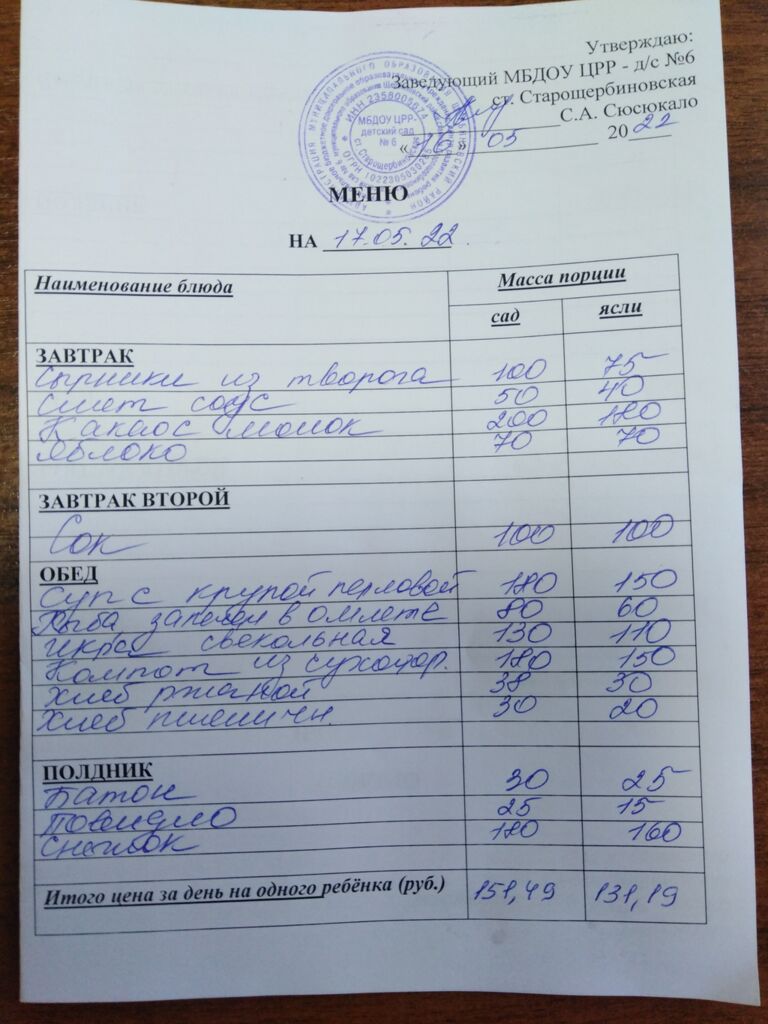 Утверждаю:
Заведующий МБДОУ ЦРР - д/с №6
ст. Старощербиновская
С.А. Сюсюкало
«16» 05 2022
ИНН 2358005674
МБДОУ ЦРР-
детский сад
№ 6
ст. Старощербиновская
МЕНЮ
НА 17.05.22.
Наименование блюда Масса порции
сад ясли
ЗАВТРАК
Сырники из творога 100 75
Смет соус 50 40
Какаос молок 200 180
Яблоко 70 70
ЗАВТРАК ВТОРОЙ
Сок 100 100
ОБЕД
Суп с крупой перловой 180 150
Рыба запечён в омлете 80 60
Икра свекольная 130 110
Компот из сухофр. 180 150
Хлеб ржаной 38 30
Хлеб пшеничн. 30 20
ПОЛДНИК
Батон 30 25
Повидло 25 15
Снежок 180 160
Итого цена за день на одного ребёнка (руб.) 151,49 131,19